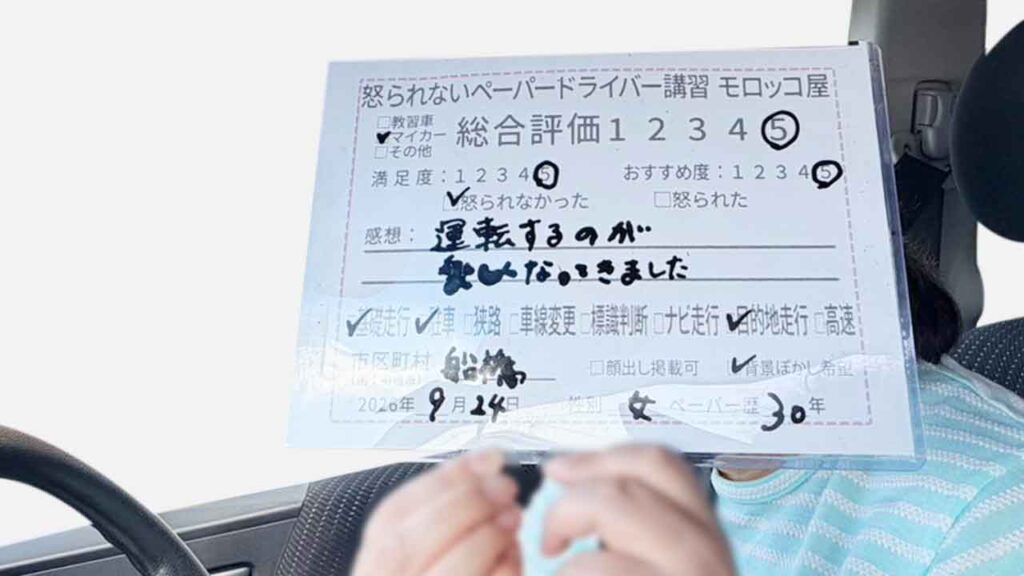 怒られないペーパードライバー講習 モロッコ屋
□教習車
✓マイカー
□その他
総合評価 1 2 3 4 ⑤
満足度：1 2 3 4 ⑤ おすすめ度：1 2 3 4 ⑤
✓怒られなかった □怒られた
感想：運転するのが
なってきました
✓基礎走行 ✓駐車 □狭路 □車線変更 □標識判断 □ナビ走行 ✓目的地走行 □高速
市区町村 船橋 □顔出し掲載可 ✓背景ぼかし希望
2026年 9月 24日 性別 女 ペーパー歴 30年